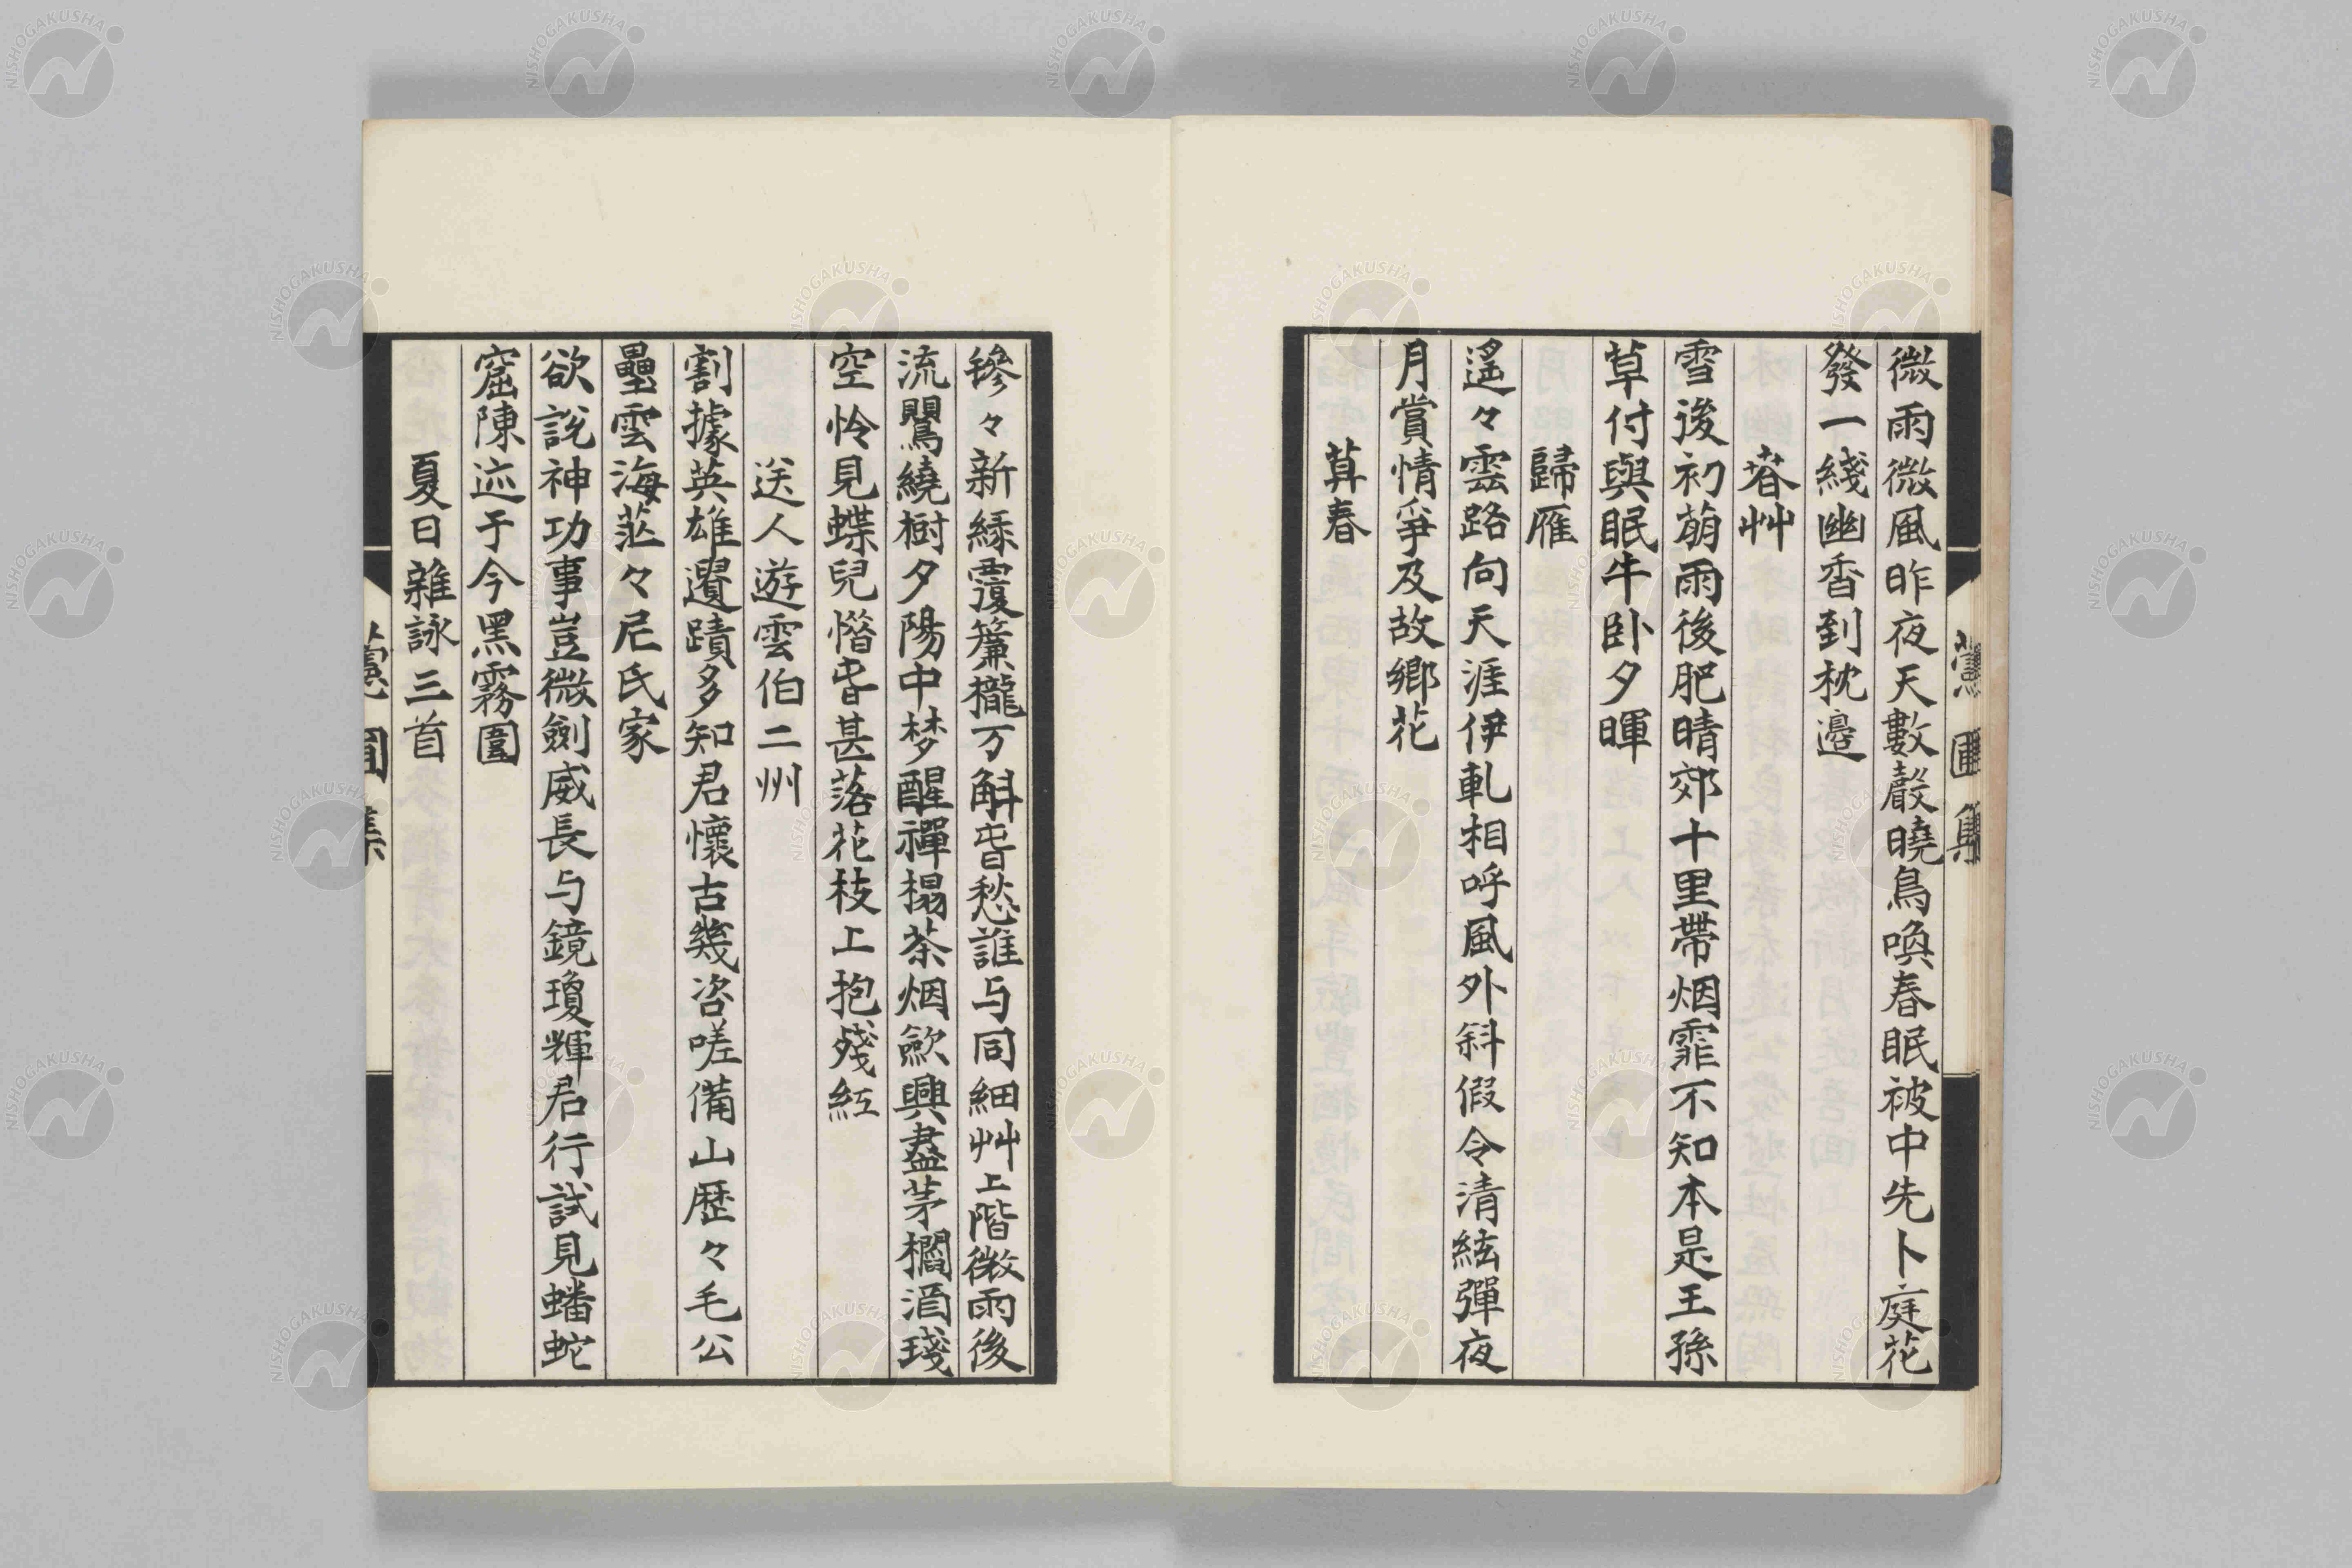 微雨微風昨夜天數聲曉鳥喚春眠被中先卜庭花
發一綫幽香到枕邊
春艸
雪後初萠雨後肥晴郊十里帶烟霏不知本是王孫
草付與眠牛卧夕暉
歸雁
遙々雲路向天涯伊軋相呼風外斜假令清絃彈夜
月賞情爭及故鄉花
莫春
毿々新緑覆簾櫳万斛春愁誰与同細艸上階微雨後
流鸎繞樹夕陽中梦醒禪榻茶烟歛興盡茅櫊酒琖
空怜見蝶兒惜春甚落花枝上抱殘紅
送人遊雲伯二州
割據英雄遺蹟多知君懷古幾咨嗟備山歷々毛公
壘雲海茫々尼氏家
欲說神功事豈微劍威長与鏡瓊輝君行試見蟠蛇
窟陳迹于今黑霧圍
夏日雜詠三首